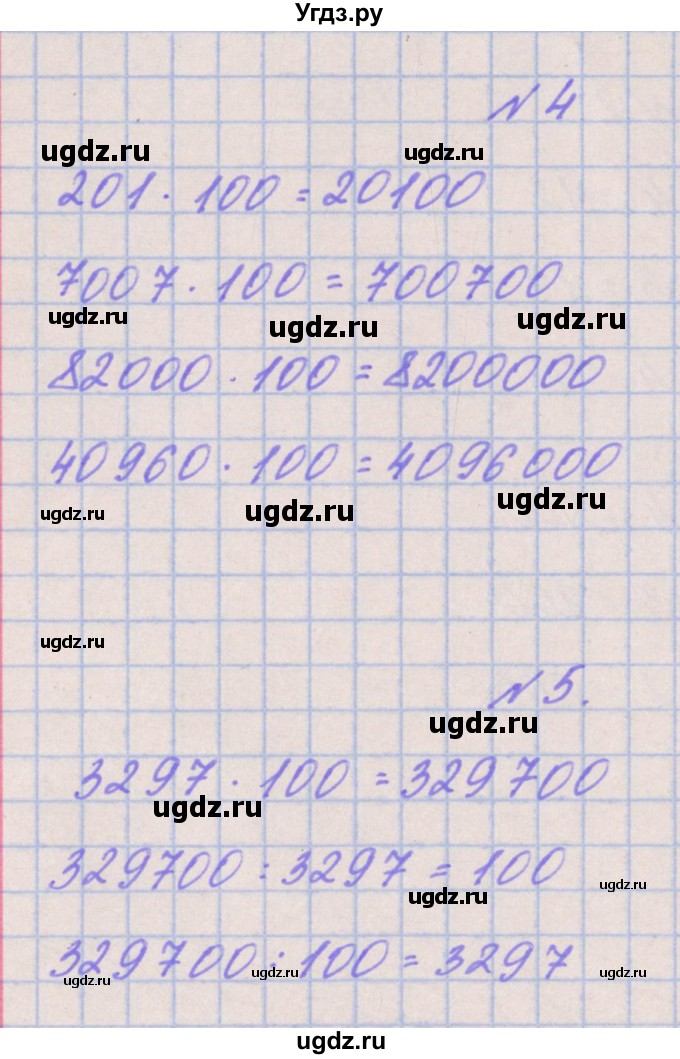 Угдз.ру
N 4
ugdz.ru ugdz.ru
201 · 100 = 20100
7007 · 100 = 700700
ugdz.ru ugdz.ru ugdz.ru
82000 · 100 = 8200000
40960 · 100 = 4096000
ugdz.ru ugdz.ru ugdz.ru
ugdz.ru
N 5.
ugdz.ru
3297 · 100 = 329700
ugdz.ru
329700 : 3297 = 100
ugdz.ru ugdz.ru
329700 : 100 = 3297
ugdz.ru ugdz.ru ugdz.ru
ugdz.ru